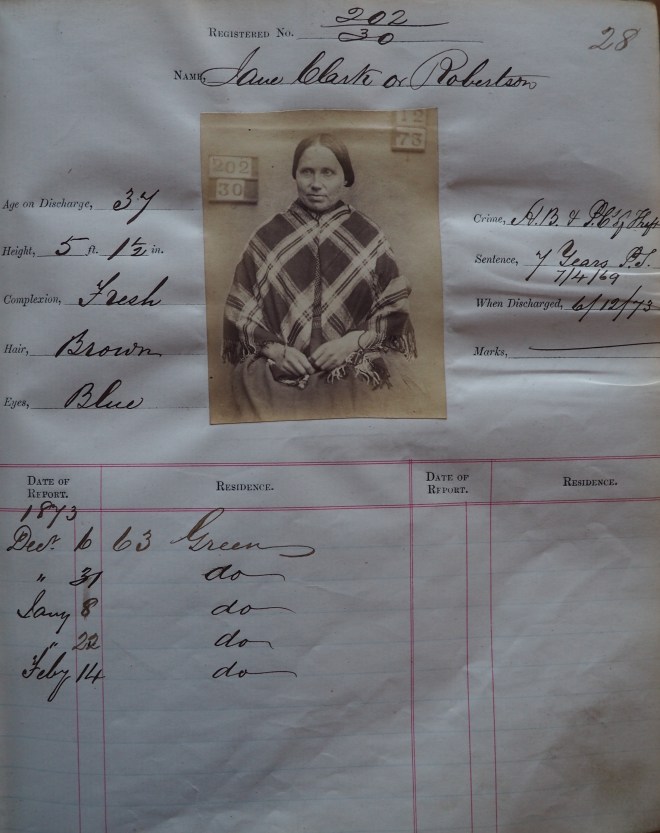 REGISTERED No. 202
30
28
NAME, Jane Clark or Robertson
12
73
202
30
Age on Discharge, 37
Height, 5 ft. 1½ in.
Complexion, Fresh
Hair, Brown
Eyes, Blue
Crime, H.B. & P.C. Theft
Sentence, 7 Years P.S.
7/4/69
When Discharged, 6/12/73
Marks,
DATE OF REPORT. RESIDENCE. DATE OF REPORT. RESIDENCE.
1873
Decr. 6 63 Green
" 31 do
Jany 8 do
" 22 do
Feby 14 do